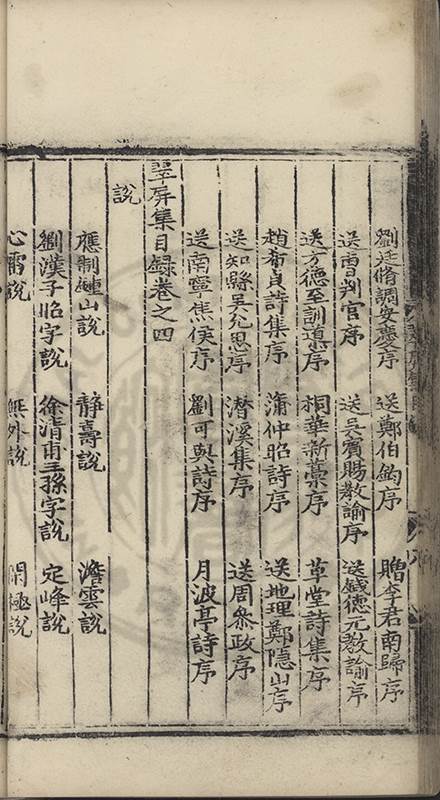 劉廷脩調安慶序 送鄭伯鈞序 贈李君南歸序
送曹判官序 送吳賓賜教諭序 送錢德元教諭序
送方德至訓導序 桐華新藁序 草堂詩集序
趙希貞詩集序 蒲仲昭詩序 送地理鄭隱山序
送知縣吳允思序 潛溪集序 送周叅政序
送南寧焦侯序 劉可與詩序 月波亭詩序
翠屏集目錄卷之四
說
應制鍾山說 靜壽說 澹雲說
劉漢子昭字說 徐清甫三孫字說 定峰說
心雷說 無外說 閒極說